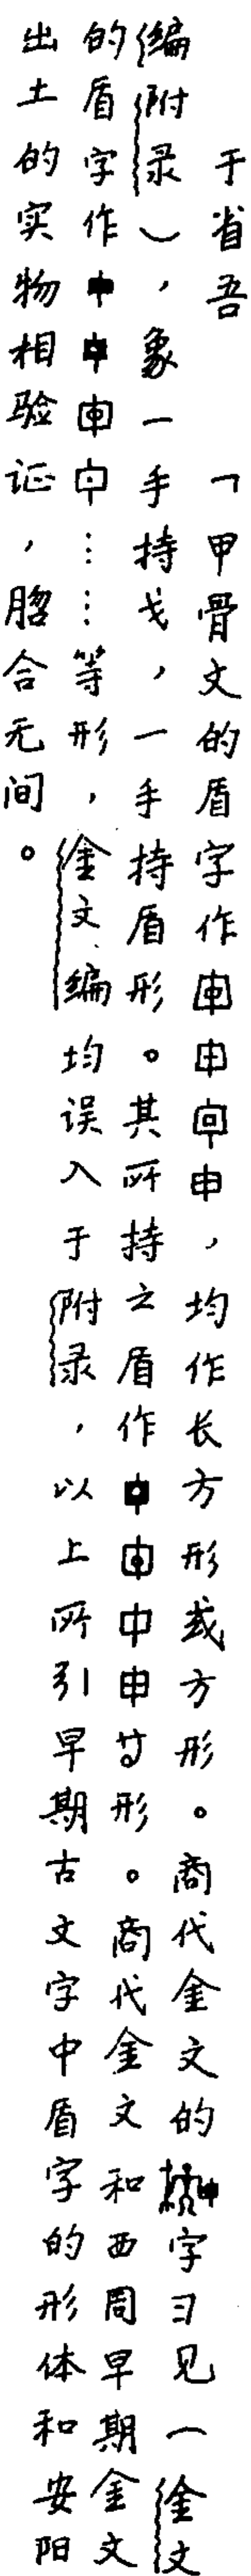 于省吾 「甲骨文的盾字作，均作长方形或方形。商代金文的字习见（金文
编附录），象一手持戈，一手持盾形。其所持之盾作等形。商代金文和西周早期金文
的盾字作……等形，金文编均误入于附录，以上所引早期古文字中盾字的形体和安阳
出土的实物相验证，脗合无间。